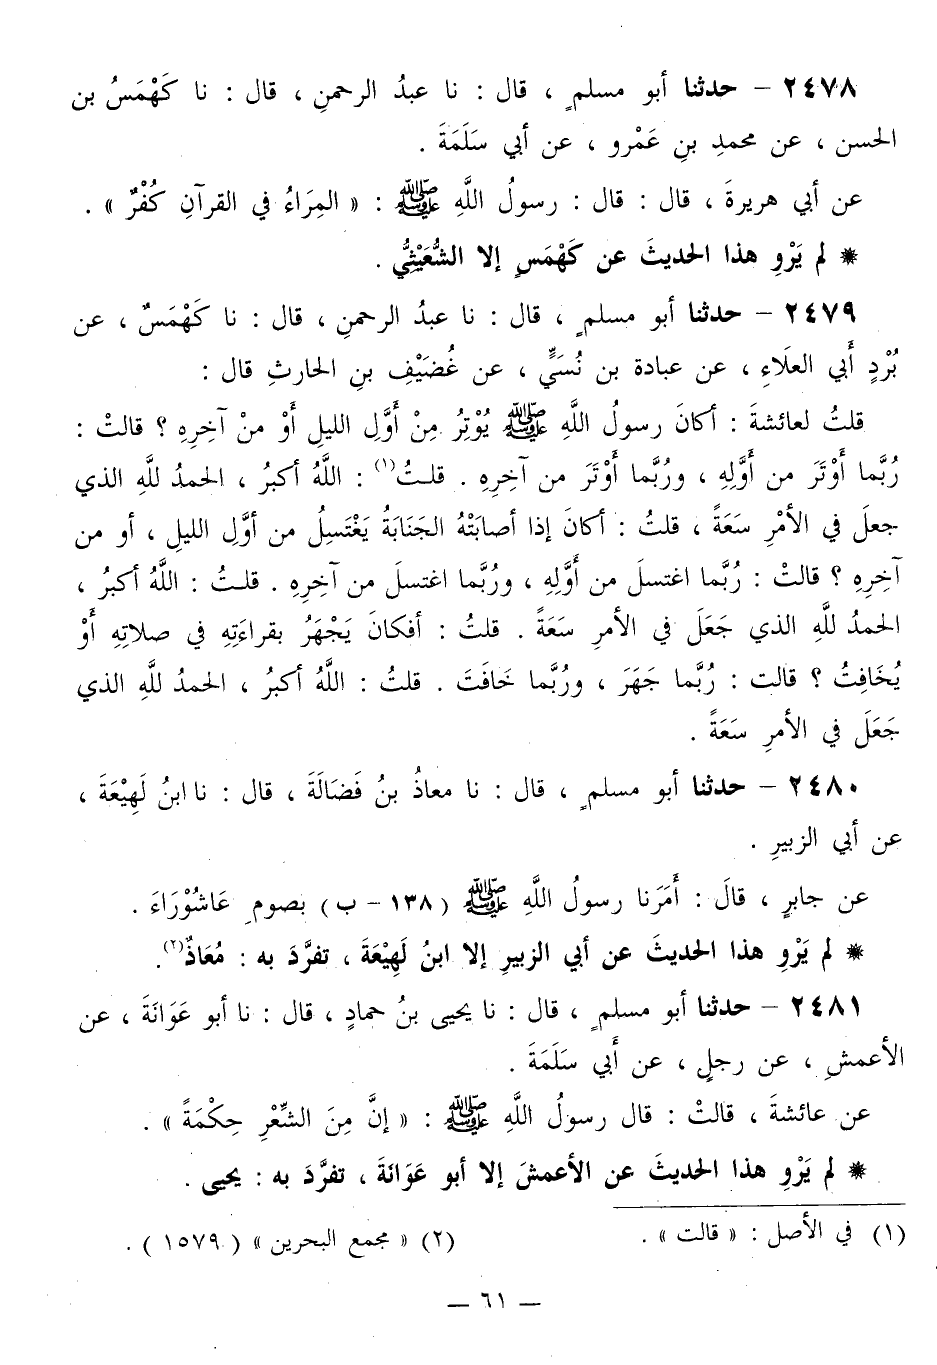 ٢٤٧٨ – حدثنا أبو مسلمٍ ، قال : نا عبدُ الرحمنِ ، قال : نا كَهْمَسُ بن
الحسن ، عن محمدِ بنِ عَمْرو ، عن أبي سَلَمَةَ .
عن أبي هريرةَ ، قال : قال : رسولُ اللَّهِ ﷺ : « المِرَاءُ في القرآنِ كُفْرٌ » .
* لم يَرْوِ هذا الحديثَ عن كَهْمَسٍ إلا الشُّعَيْثِيُّ .
٢٤٧٩ – حدثنا أبو مسلمٍ ، قال : نا عبدُ الرحمنِ ، قال : نا كَهْمَسٌ ، عن
بُرْدٍ أَبي العلَاءِ ، عن عبادة بن نُسَيٍّ ، عن غُضَيْفِ بنِ الحارثِ قال :
قلتُ لعائشةَ : أكانَ رسولُ اللَّهِ ﷺ يُوْتِرُ مِنْ أَوَّلِ الليلِ أَوْ منْ آخِرِهِ ؟ قالتْ :
رُبَّما أَوْتَرَ من أَوَّلِهِ ، ورُبَّما أَوْتَرَ من آخِرِهِ . قلتُ(١) : اللَّهُ أكبرُ ، الحمدُ للَّهِ الذي
جعلَ في الأمْرِ سَعَةً ، قلتُ : أكانَ إذا أصابَتْهُ الجَنَابَةُ يَغْتَسِلُ من أوَّلِ الليلِ ، أو من
آخِرِهِ ؟ قالتْ : رُبَّما اغتسلَ من أَوَّلِهِ ، ورُبَّما اغتسلَ من آخِرِهِ . قلتُ : اللَّهُ أكبرُ ،
الحمدُ للَّهِ الذي جَعَلَ في الأمرِ سَعَةً . قلتُ : أفكانَ يَجْهَرُ بقراءَتِهِ في صلاتِهِ أَوْ
يُخَافِتُ ؟ قالت : رُبَّما جَهَرَ ، ورُبَّما خَافَتَ . قلتُ : اللَّهُ أكبرُ ، الحمدُ للَّهِ الذي
جَعَلَ في الأمرِ سَعَةً .
٢٤٨٠ – حدثنا أبو مسلمٍ ، قال : نا معاذُ بنُ فَضَالَةَ ، قال : نا ابنُ لَهِيْعَةَ ،
عن أبي الزبيرِ .
عن جابرٍ ، قالَ : أَمَرَنا رسولُ اللَّهِ ﷺ ( ١٣٨ – ب ) بصومِ عَاشُوْرَاءَ .
* لم يَرْوِ هذا الحديثَ عن أبي الزبيرِ إلا ابنُ لَهِيْعَةَ ، تفرَّدَ به : مُعَاذٌ(٢).
٢٤٨١ – حدثنا أبو مسلمٍ ، قال : نا يحيى بنُ حمادٍ ، قال : نا أبو عَوَانَةَ ، عن
الأعمشِ ، عن رجلٍ ، عن أَبي سَلَمَةَ .
عن عائشةَ ، قالتْ : قال رسولُ اللَّهِ ﷺ : « إنَّ مِنَ الشِّعْرِ حِكْمَةً » .
* لم يَرْوِ هذا الحديثَ عن الأعمشَ إلا أبو عَوَانَةَ ، تفرَّدَ به : يحيى .
(١) في الأصل : « قالت » .
(٢) « مجمع البحرين » ( ١٥٧٩ ) .
– ٦١ –